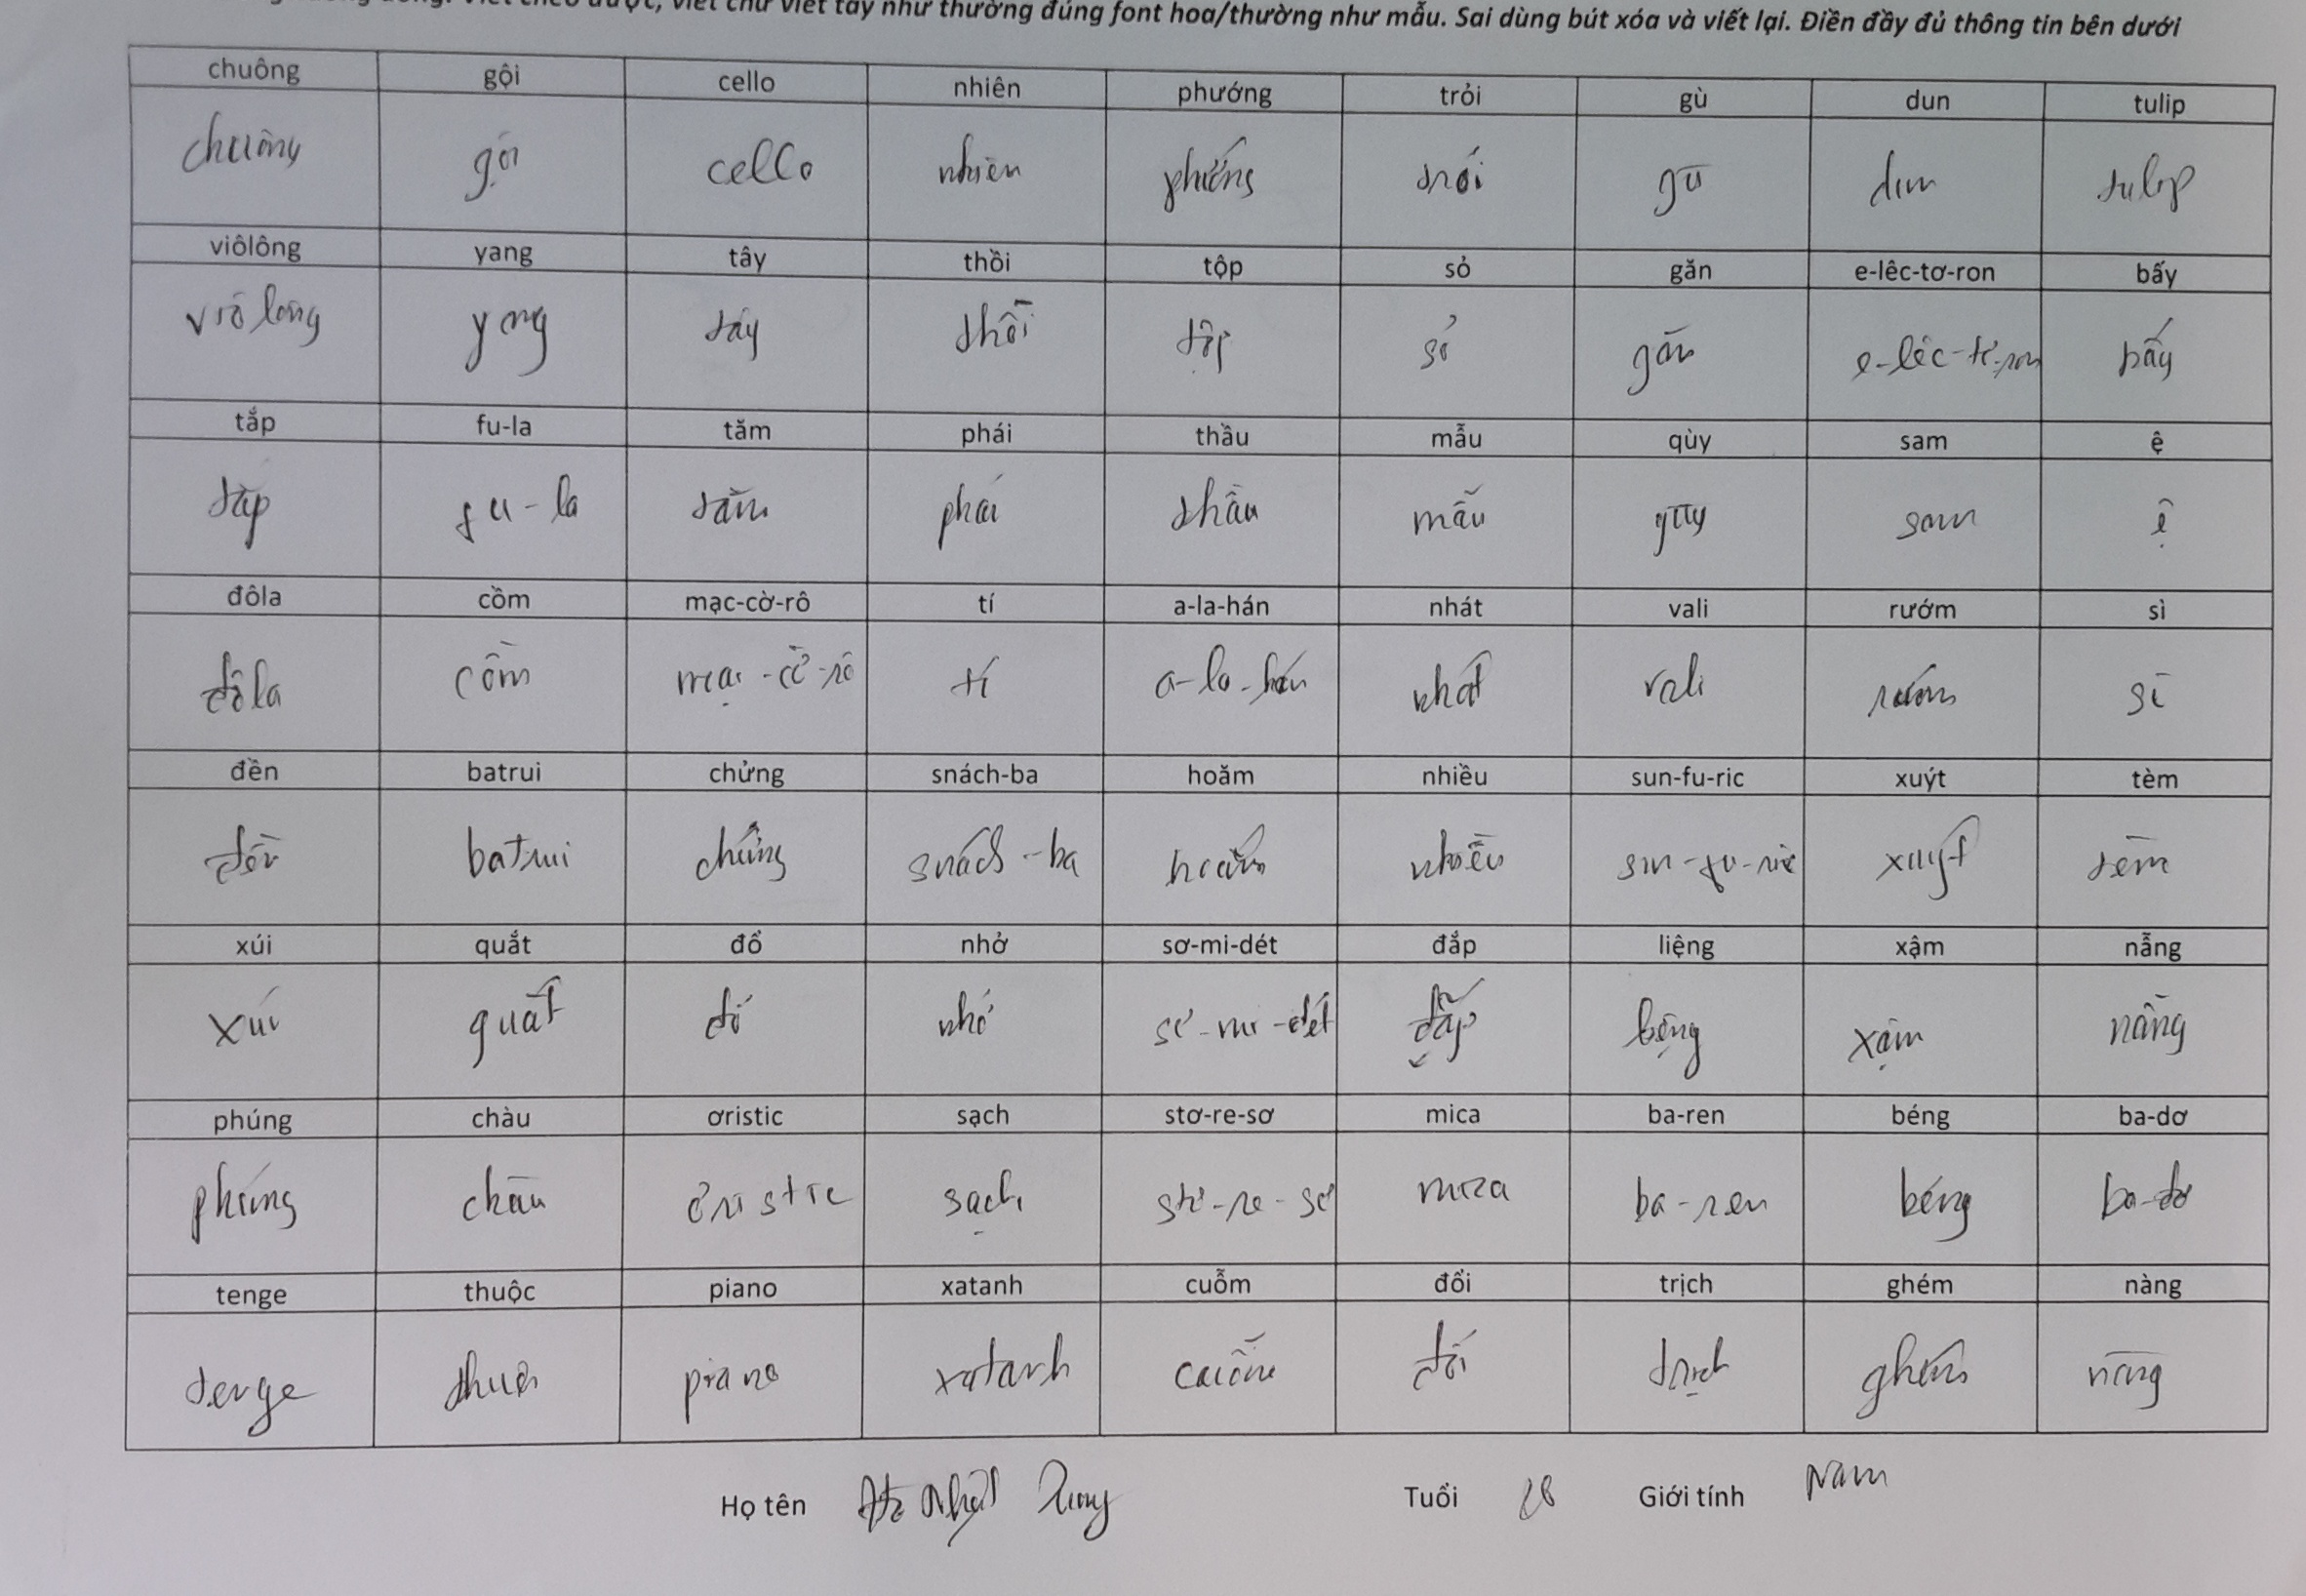 viết chữ viết tay như thường đúng font hoa/thường như mẫu. Sai dùng bút xóa và viết lại. Điền đầy đủ thông tin bên dưới
chuông gội cello nhiên phướng trỏi gù dun tulip
chuông gội cello nhiên phướng trỏi gù dun tulip
viôlông yang tây thồi tộp sỏ găn e-lêc-tơ-ron bấy
viôlông yang tây thồi tộp sỏ găn e-lêc-tơ-ron bấy
tắp fu-la tăm phái thầu mẫu qùy sam ệ
tắp fu-la tăm phái thầu mẫu qùy sam ệ
đôla cồm mạc-cờ-rô tí a-la-hán nhát vali rướm sì
đôla cồm mạc-cờ-rô tí a-la-hán nhát vali rướm sì
đền batrui chửng snách-ba hoăm nhiều sun-fu-ric xuýt tèm
đền batrui chửng snách-ba hoăm nhiều sun-fu-ric xuýt tèm
xúi quắt đổ nhở sơ-mi-dét đắp liệng xậm nẵng
xúi quắt đổ nhở sơ-mi-đét đắp liệng xậm nẵng
phúng chàu ơristic sạch stơ-re-sơ mica ba-ren béng ba-dơ
phúng chàu ơristic sạch stơ-re-sơ mica ba-ren béng ba-đơ
tenge thuộc piano xatanh cuỗm đổi trịch ghém nàng
tenge thuộc piano xatanh cuỗm đổi trịch ghém nàng
Họ tên Nhật Tuổi Giới tính Nam